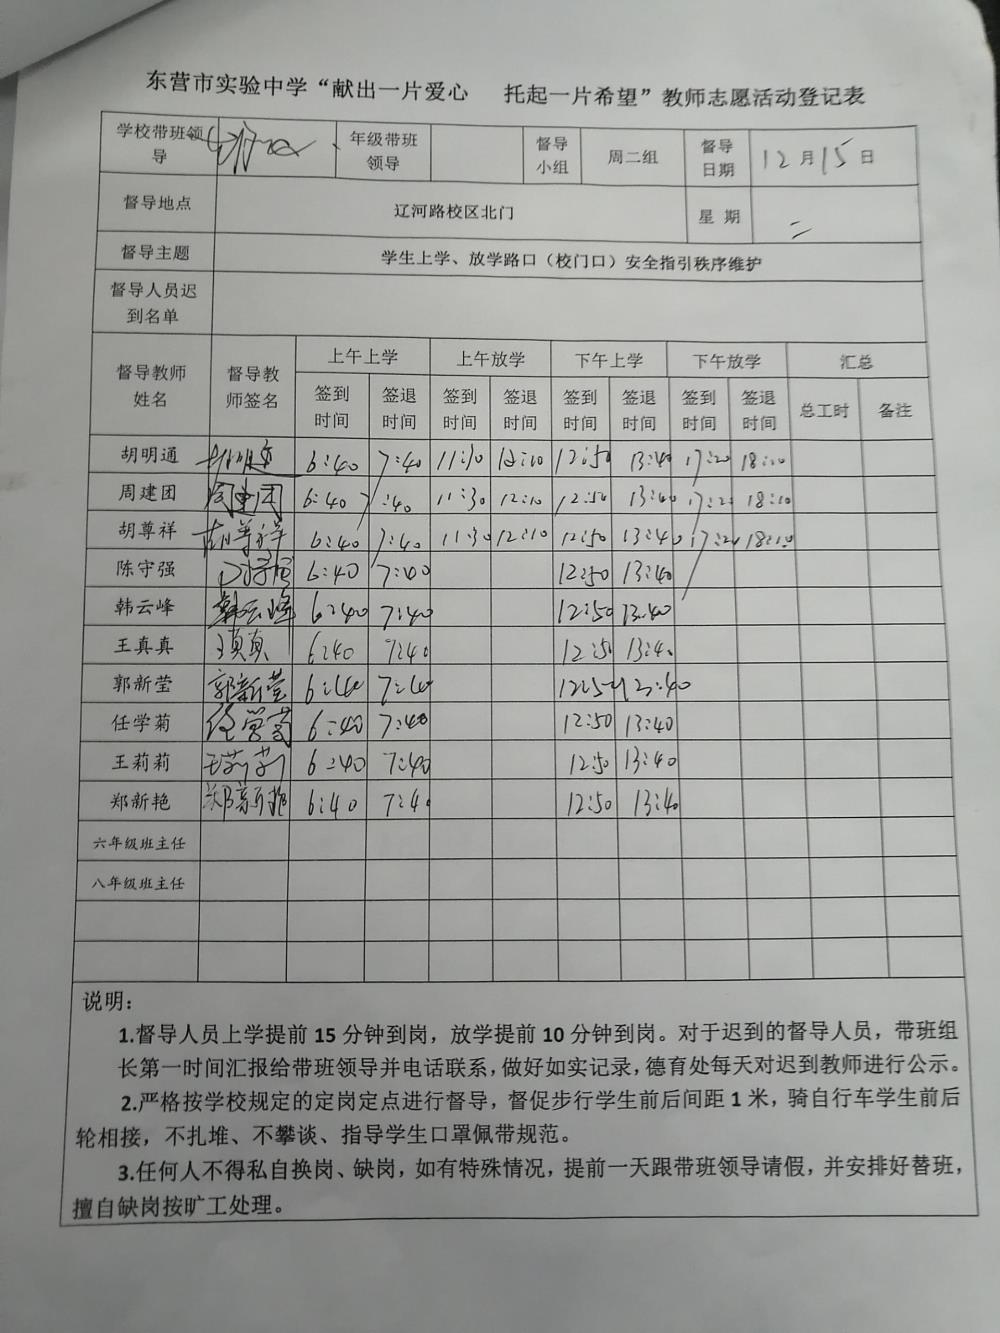 东营市实验中学“献出一片爱心 托起一片希望”教师志愿活动登记表
学校带班领导 年级带班领导 督导小组 周二组 督导日期 12月15日
督导地点 辽河路校区北门 星 期 二
督导主题 学生上学、放学路口（校门口）安全指引秩序维护
督导人员迟到名单
督导教师姓名 督导教师签名 上午上学 上午放学 下午上学 下午放学 汇总
签到时间 签退时间 签到时间 签退时间 签到时间 签退时间 签到时间 签退时间 总工时 备注
胡明通 胡明通 6:40 7:40 11:30 12:10 12:50 13:40 17:20 18:10
周建团 周建团 6:40 7:40 11:30 12:10 12:50 13:40 17:20 18:10
胡尊祥 胡尊祥 6:40 7:40 11:30 12:10 12:50 13:40 17:20 18:10
陈守强 6:40 7:40 12:50 13:40
韩云峰 韩云峰 6:40 7:40 12:50 13:40
王真真 王真真 6:40 7:40 12:50 13:40
郭新莹 郭新莹 6:40 7:40 12:50 13:40
任学菊 任学菊 6:40 7:40 12:50 13:40
王莉莉 王莉莉 6:40 7:40 12:50 13:40
郑新艳 郑新艳 6:40 7:40 12:50 13:40
六年级班主任
八年级班主任
说明：
1.督导人员上学提前 15 分钟到岗，放学提前 10 分钟到岗。对于迟到的督导人员，带班组
长第一时间汇报给带班领导并电话联系，做好如实记录，德育处每天对迟到教师进行公示。
2.严格按学校规定的定岗定点进行督导，督促步行学生前后间距 1 米，骑自行车学生前后
轮相接，不扎堆、不攀谈、指导学生口罩佩带规范。
3.任何人不得私自换岗、缺岗，如有特殊情况，提前一天跟带班领导请假，并安排好替班，
擅自缺岗按旷工处理。